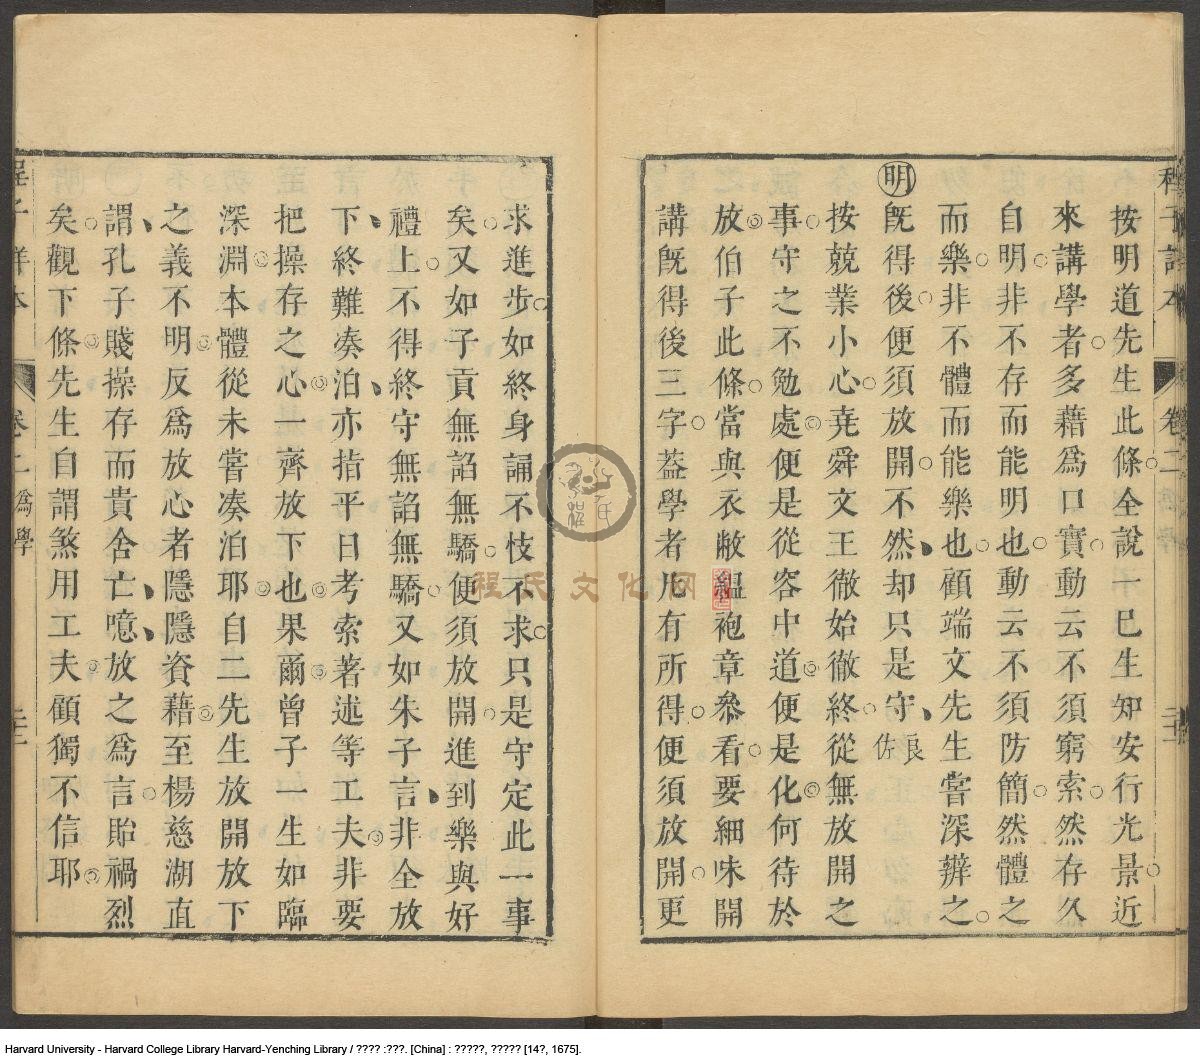 按明道先生此條全說一巳生知安行光景近
來講學者多藉爲口實動云不須窮索然存久
自明非不存而能明也動云不須防簡然體之
而樂非不體而能樂也顧端文先生嘗深辨之
明
旣得後便須放開不然却只是守 良佐
按兢業小心堯舜文王徹始徹終從無放開之
事守之不勉處便是從容中道便是化何待於
放伯子此條當與衣敝縕袍章叅看要細味開
講旣得後三字葢學者凡有所得便須放開更
程子詳本 卷二 爲學
求進步如終身誦不忮不求只是守定此一事
矣又如子貢無諂無驕便須放開進到樂與好
禮上不得終守無諂無驕又如朱子言非全放
下終難凑泊亦指平日考索著述等工夫非要
把操存之心一齊放下也果爾曾子一生如臨
深淵本體從未嘗凑泊耶自二先生放開放下
之義不明反爲放心者隱隱資藉至楊慈湖直
謂孔子賤操存而貴舍亡噫放之爲言貽禍烈
矣觀下條先生自謂煞用工夫顧獨不信耶
程氏文化网
Harvard University - Harvard College Library Harvard-Yenching Library / ???? :???. [China] : ?????, ????? [14?, 1675].